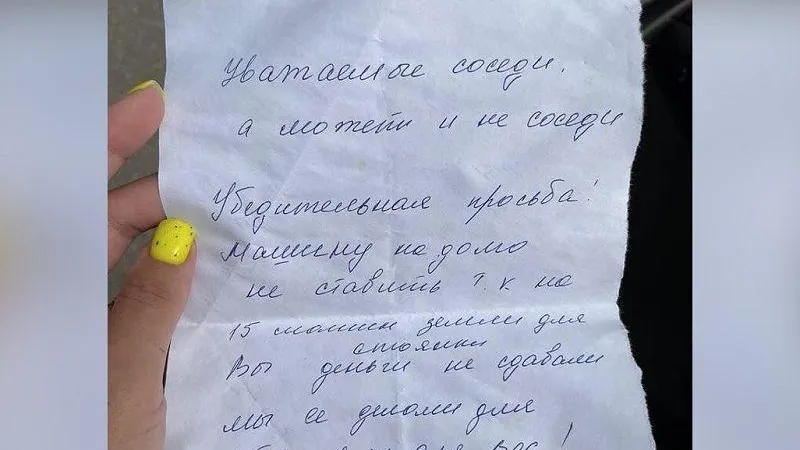 Уважаемые соседи,
а может и не соседи
Убедительная просьба!
Машину на домо
не ставить т.к. на
15 машин земли для
стоянки
Вы деньги не сдавали
мы се делали для
Вас!